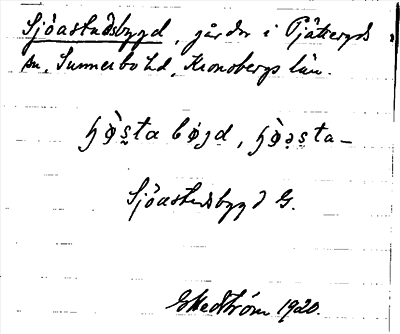 Sjöastadsbygd, gårdar i Pjätteryds
sn, Sunnerbo hd, Kronobergs län.
ɧø̀s̠ta bøjd, ɧø̀ə̠s̠ta-
Sjöastadsbygd G.
1920.